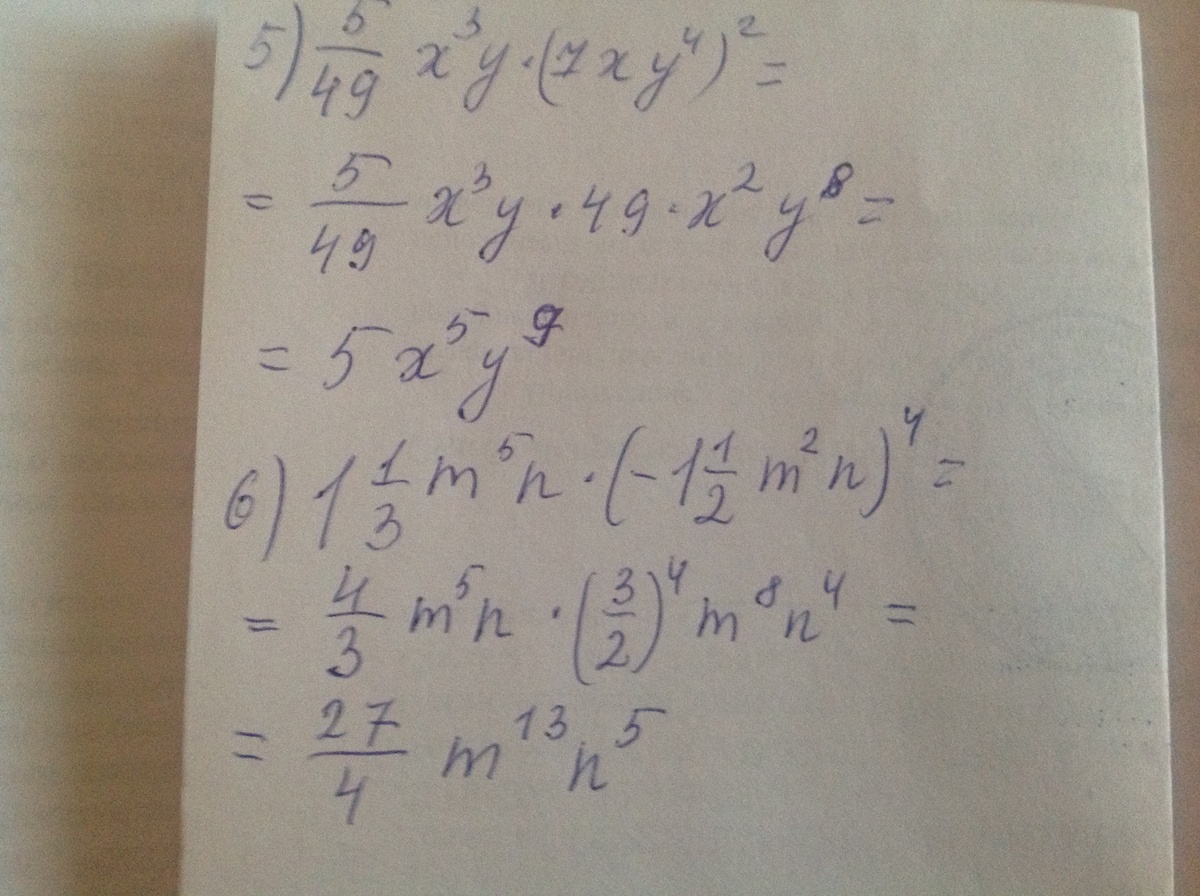 5) 5/49 x³y · (7xy⁴)² =
= 5/49 x³y · 49 · x² y⁸ =
= 5x⁵y⁹
6) 1 1/3 m⁵n · (-1 1/2 m²n)⁴ =
= 4/3 m⁵n · (3/2)⁴ m⁸n⁴ =
= 27/4 m¹³n⁵